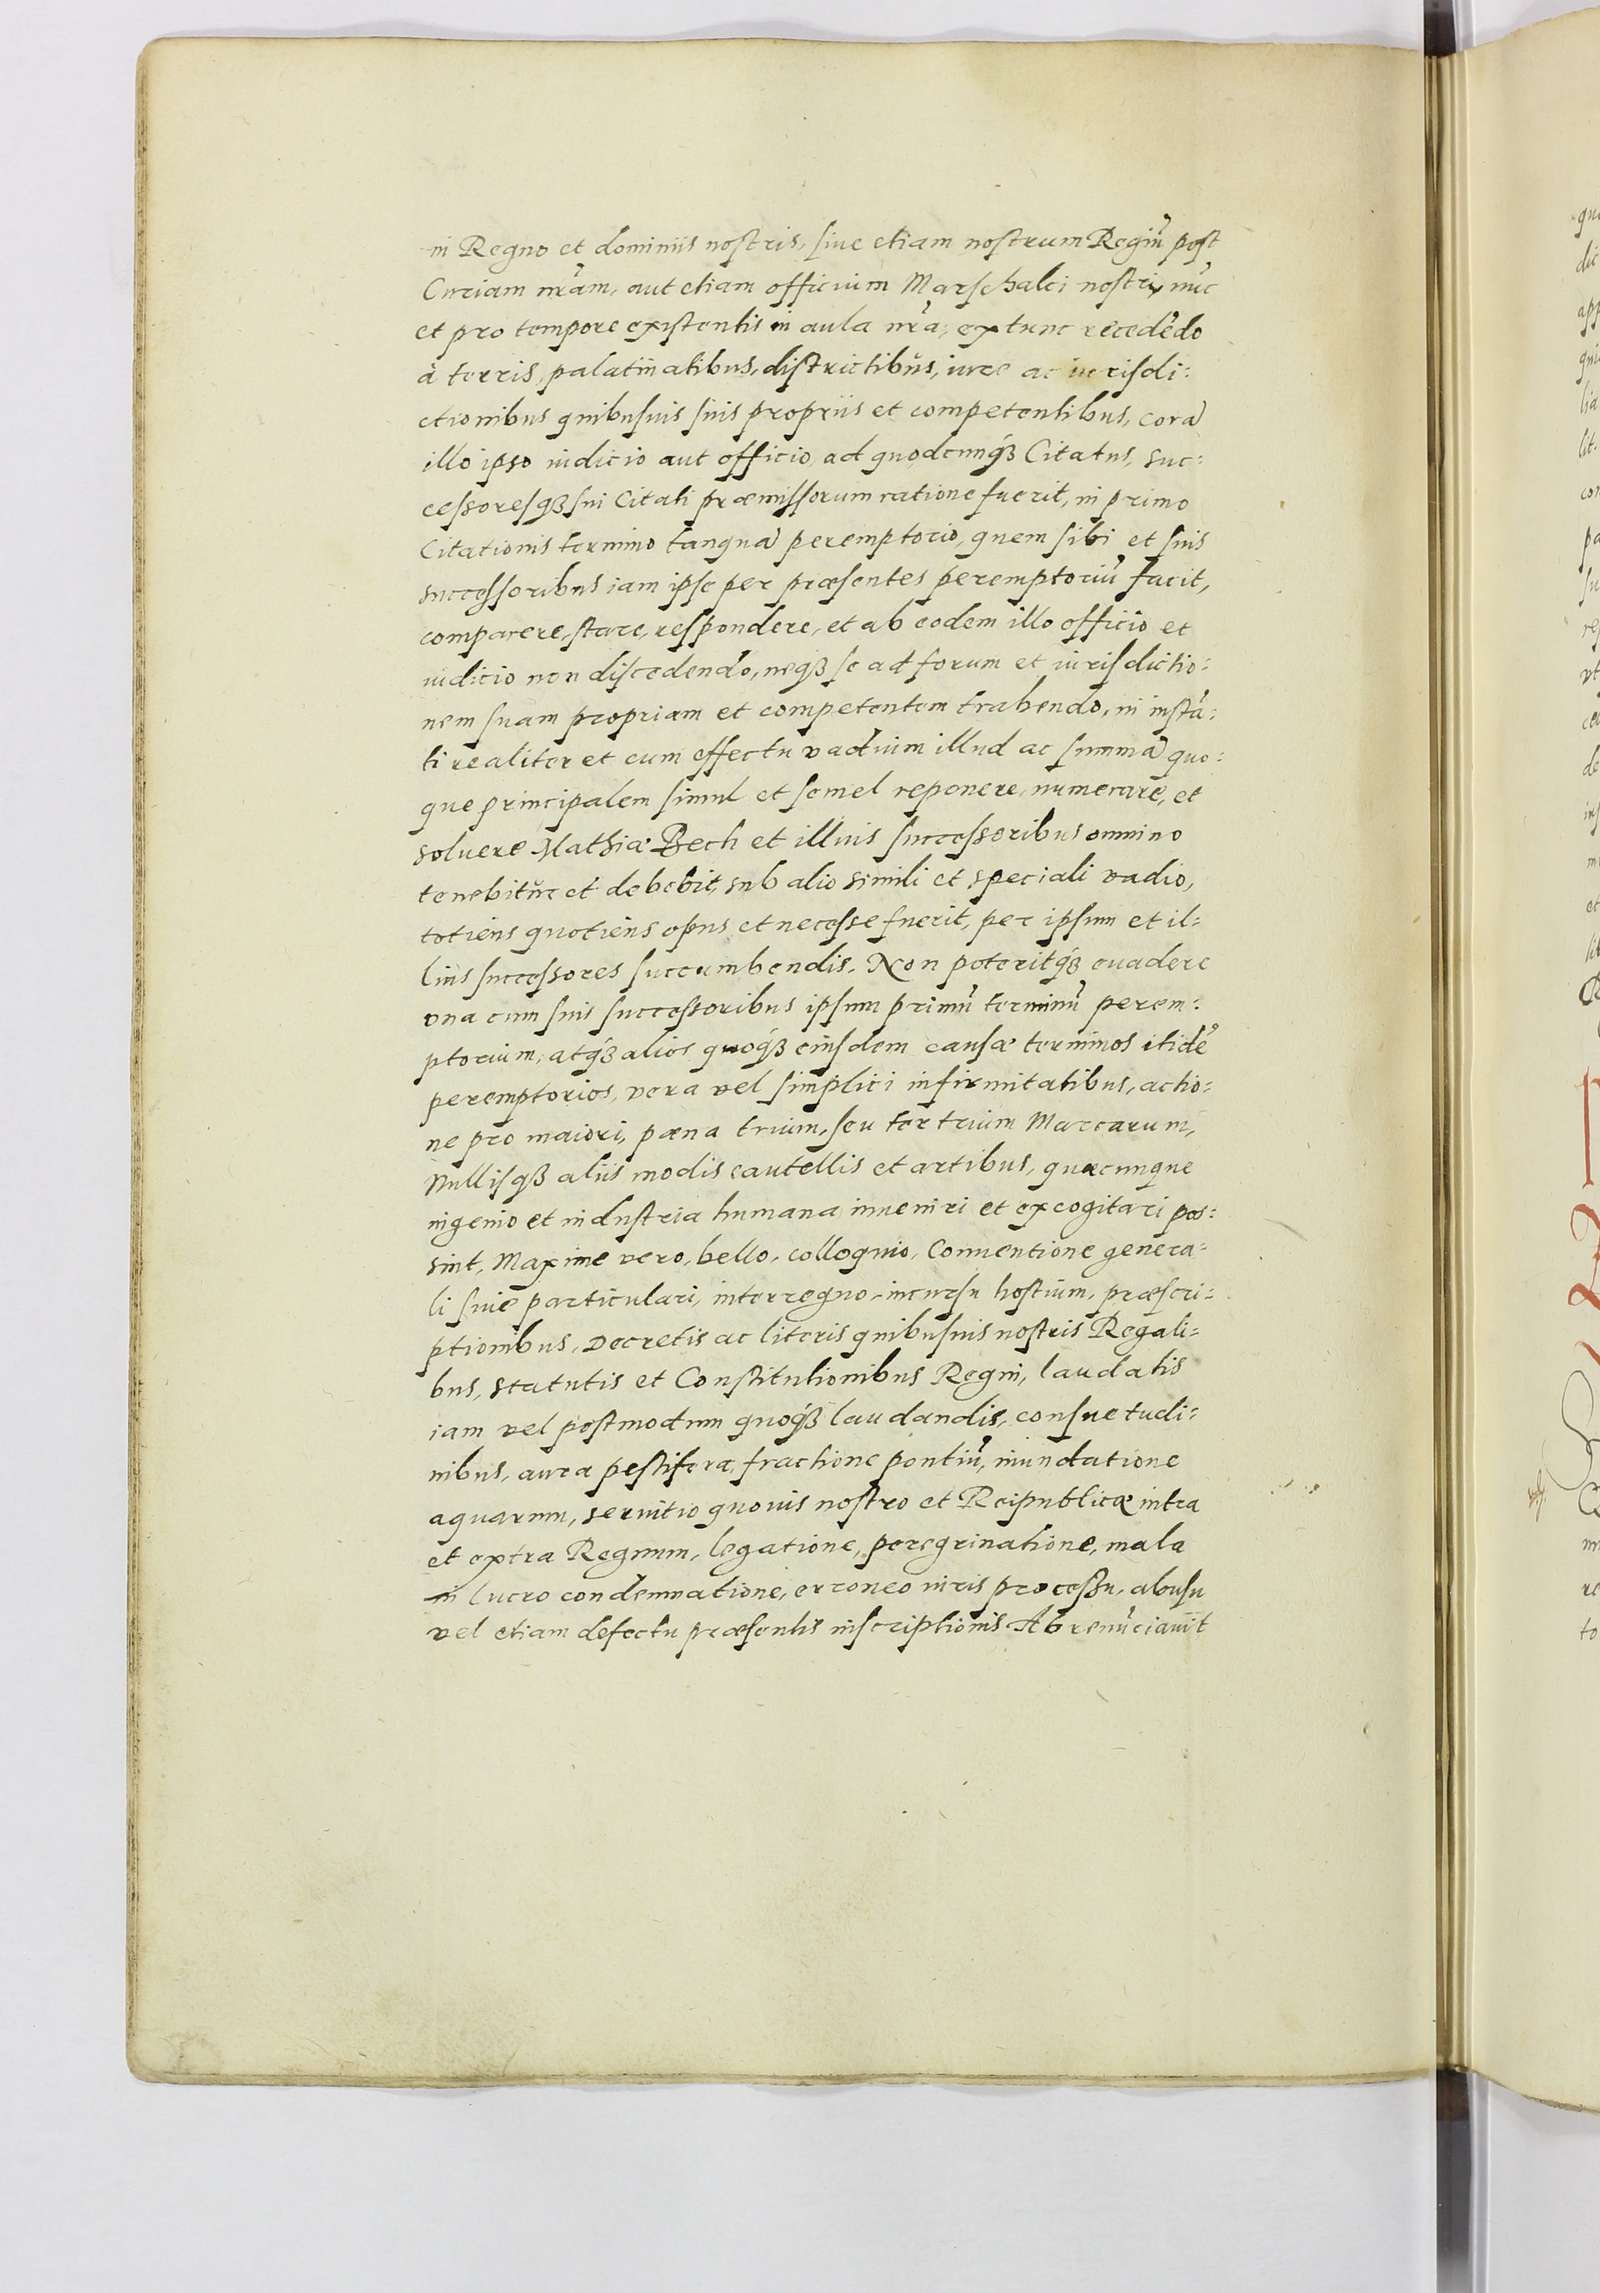 in Regno et dominiis nostris, siue etiam nostrum Regiũ post
Curiam nr̃am, aut etiam officium Marschalci nostri, nũc
et pro tempore existentis in aula nr̃a, extunc recedẽdo
à terris, palatinatibus, districtibus, iure ac iurisdi:
ctionibus quibusuis suis propriis et competentibus, corã
illo ipso iudicio aut officio, ad quodcunq3 Citatus, suc:
cessoresq3 sui Citati præmissorum ratione fuerit, in primo
Citationis termino tanquã peremptorio, quem sibi et suis
successoribus iam ipse per præsentes peremptoriũ facit,
comparere, stare, respondere, et ab eodem illo officio et
iudicio non discedendo, neq3 se ad forum et iurisdictio:
nem suam propriam et competentem trahendo, in instã:
ti realiter et cum effectu vadium illud ac summã quo:
que principalem simul et semel reponere, numerare, et
soluere Mathiæ Bech et illius successoribus omnino
tenebitur et debebit, sub alio simili et speciali vadio,
totiens quotiens opus et necesse fuerit, per ipsum et il:
lius successores succumbendis. Non poteritq3 euadere
vna cum suis successoribus ipsum primũ terminũ perem:
ptorium, atq3 alios quoq3 eiusdem causæ terminos itidẽ
peremptorios, vera vel simplici infirmitatibus, actio:
ne pro maiori, pæna trium, seu ter trium Marcarum,
Nullisq3 aliis modis cautellis et artibus, quæcunque
ingenio et industria humana inueniri et excogitari pos:
sint, Maxime vero, bello, colloquio, Conuentione genera:
li siue particulari, interregno, incursu hostium, præscri:
ptionibus, Decretis ac literis quibusuis nostris Regali:
bus, statutis et Constitutionibus Regni, laudatis
iam vel postmodum quoq3 laudandis, consuetudi:
nibus, aura pestifera, fractione pontiũ, inundatione
aquarum, seruitio quouis nostro et Reipublicæ intra
et extra Regnum, legatione, peregrinatione, mala
in lucro condemnatione, erroneo iuris processu, abusu
vel etiam defectu præsentis inscriptionis Abrenũciauit